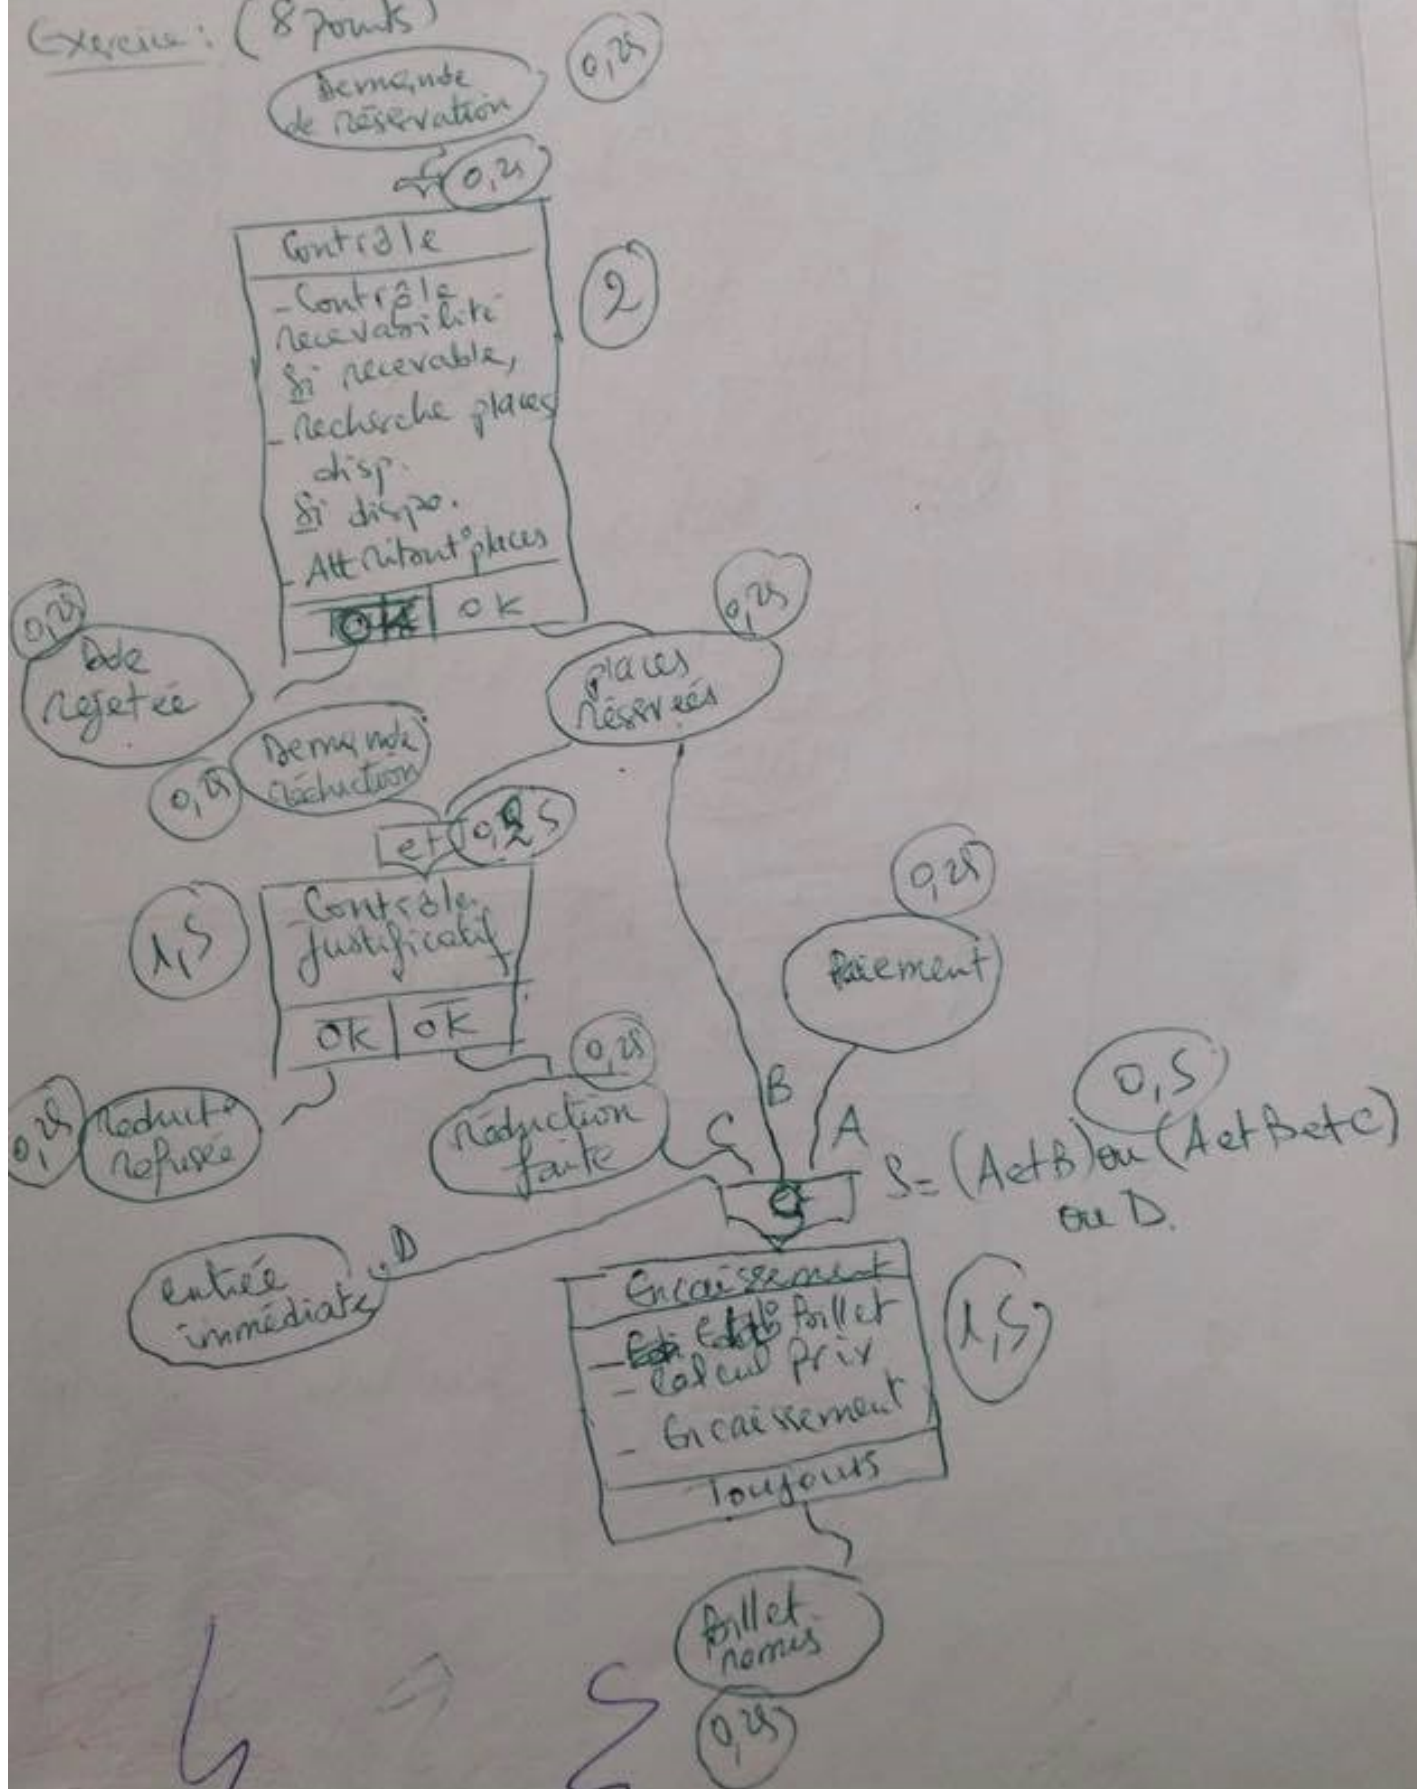 Exercice : (8 points)
Demande
de réservation
0,25
0,25
Contrôle
- Contrôle
recevabilité
Si recevable,
- recherche places
disp.
Si dispo.
- Attribut° places
OK
OK
2
0,25
Dde
rejetée
0,25
places
réservées
Demande
réduction
0,25
et
0,25
Contrôle
justificatif
1,5
OK
OK
0,25
Paiement
0,25
Réduct°
refusée
0,25
réduction
faite
C
B
A
0,5
S = (A et B) ou (A et B et C)
ou D.
entrée
immédiate
D
Encaissement
- Billet
- Calcul prix
- Encaissement
Toujours
1,5
Billet
remis
0,25